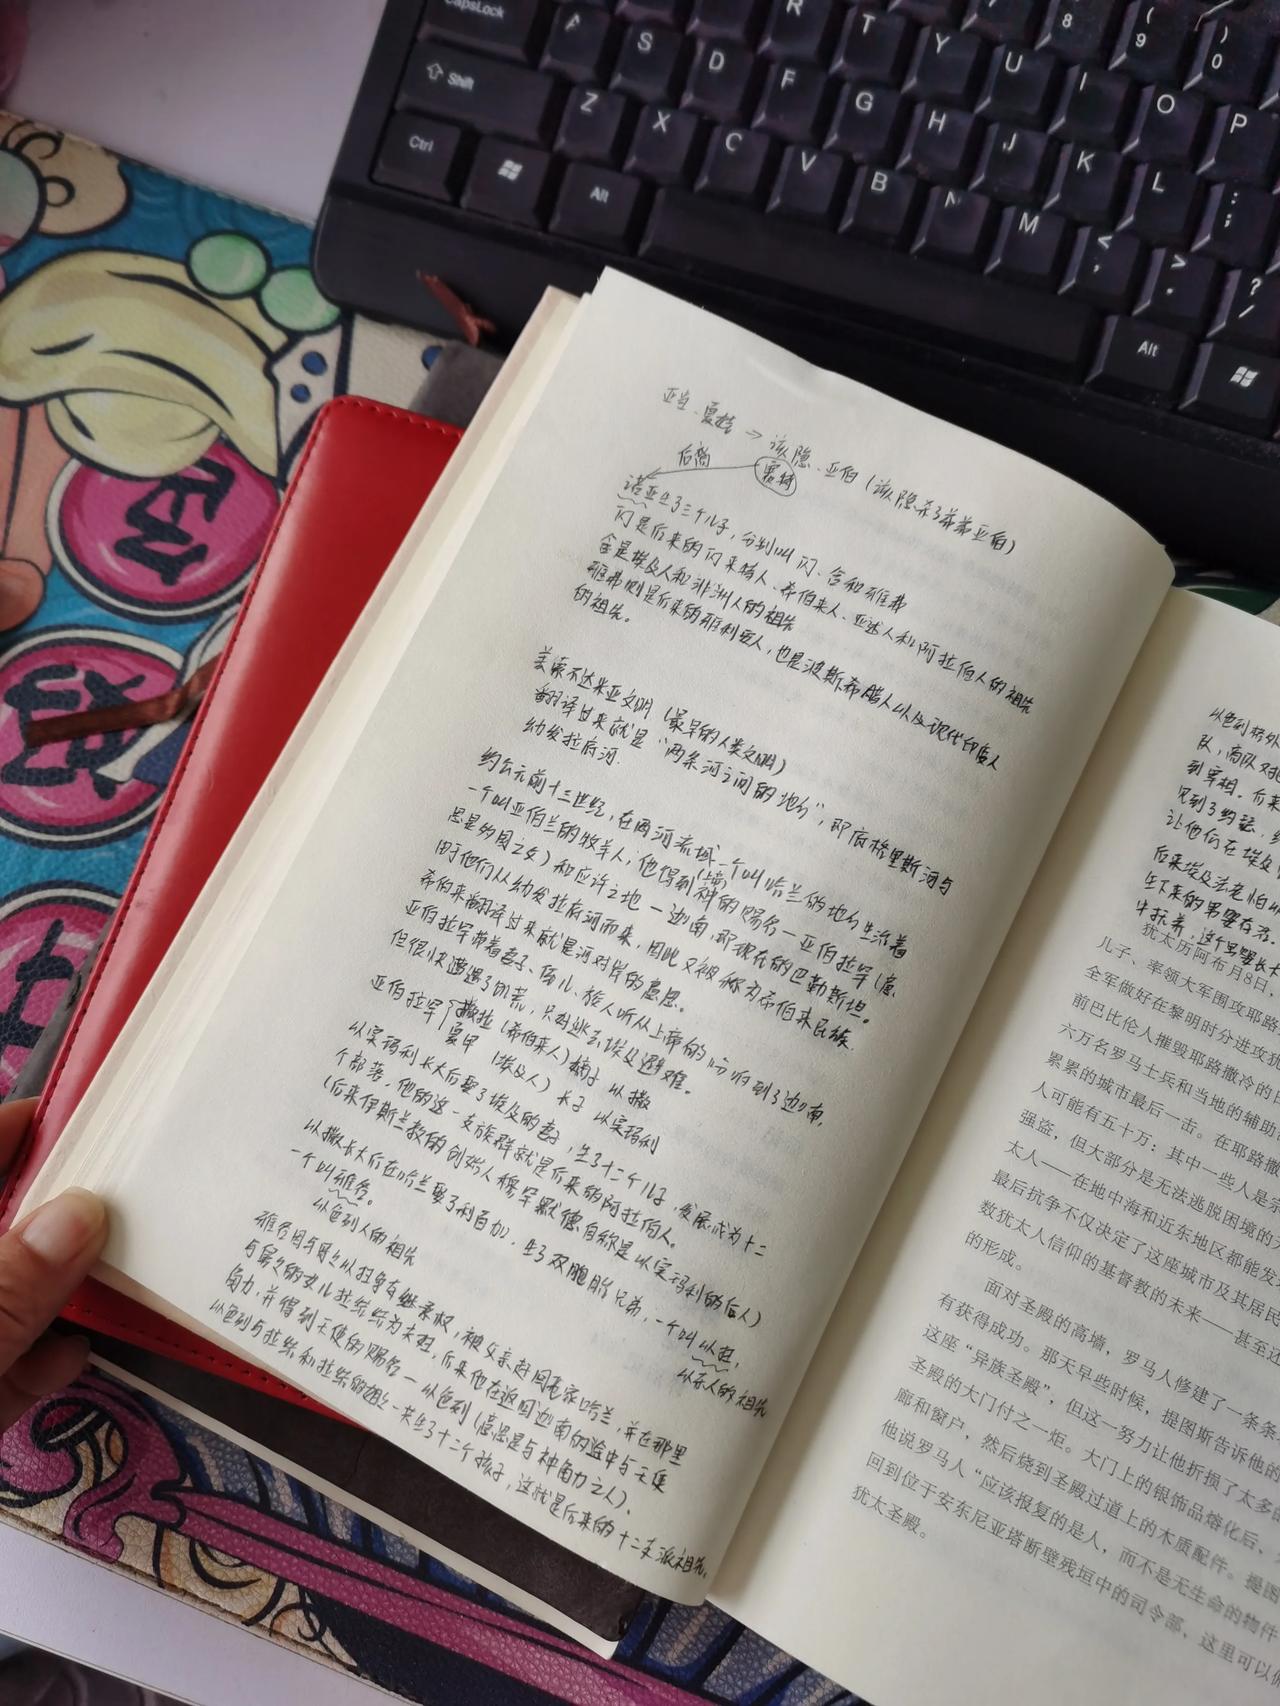 CapsLock A S D F R T Y U I O P
Shift Z X C V B N M G H J K L
Ctrl Alt
Alt
8
( 9
) 0
: ;
< ,
> .
? /
亚当·夏娃 → 该隐·亚伯（该隐杀了弟弟亚伯）
后裔
塞特
诺亚生了三个儿子，分别叫闪、含和雅弗
闪是后来的闪米特人、希伯来人、亚述人和阿拉伯人的祖先
含是埃及人和非洲人的祖先
雅弗则是后来的雅利安人，也是波斯希腊人以及现代印度人
的祖先。
美索不达米亚文明（最早的人类文明）
翻译过来就是“两条河之间的地方”，即底格里斯河与
幼发拉底河.
约公元前十三世纪，在两河流域一个叫哈兰的地方生活着
一个叫亚伯兰的牧羊人，他得到神(上帝)的赐名—亚伯拉罕（意
思是多国之父）和应许之地—迦南，即现在的巴勒斯坦。
由于他们从幼发拉底河而来，因此又被称为希伯来民族.
希伯来翻译过来就是河对岸的意思。
亚伯拉罕带着妻子、侄儿、族人听从上帝的指方向到了迦南，
但很快遭遇了饥荒，只好逃去埃及避难。
亚伯拉罕 撒拉（希伯来人）嫡子 以撒
夏甲（埃及人）长子 以实玛利
以实玛利长大后娶了埃及的妻子，生了十二个儿子，发展成为十二
个部落，他的这一支族群就是后来的阿拉伯人。
（后来伊斯兰教的创始人穆罕默德自称是以实玛利的后人）
以撒长大后在哈兰娶了利百加，生了双胞胎兄弟，一个叫以扫，
一个叫雅各。
以东人的祖先
以色列人的祖先
雅各因与哥哥以扫争夺继承权，被父亲赶回老家哈兰，并在那里
与舅舅的女儿拉结结为夫妻，后来他在返回迦南的途中与天使
角力，并得到天使的赐名—以色列（意思是与神角力之人）.
以色列与拉结和拉结的姐姐一共生了十二个孩子，这就是后来的十二支派祖先。
以色列格外
队，商队对
到宰相. 后来
见到了约瑟，
让他们在埃及
后来埃及法老怕以
生下来的男婴存活.
中抚养，这个男婴长大
犹太历阿布月8日，
儿子、率领大军围攻耶路
全军做好在黎明时分进攻犹
前巴比伦人摧毁耶路撒冷的日
六万名罗马士兵和当地的辅助
累累的城市最后一击。在耶路撒
人可能有五十万：其中一些人是宗
强盗，但大部分是无法逃脱困境的
太人——在地中海和近东地区都能发
最后抗争不仅决定了这座城市及其居民
数犹太人信仰的基督教的未来——甚至还
的形成。
面对圣殿的高墙，罗马人修建了一条条
有获得成功。那天早些时候，提图斯告诉他的
这座“异族圣殿”，但这一努力让他折损了太多
圣殿的大门付之一炬。大门上的银饰品熔化后，
廊和窗户，然后烧到圣殿过道上的木质配件。提图
他说罗马人“应该报复的是人，而不是无生命的物件
回到位于安东尼亚塔断壁残垣中的司令部，这里可以
犹太圣殿。